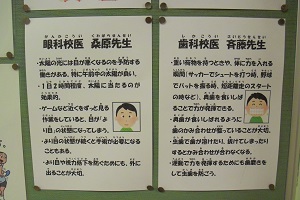 眼科校医 桑原先生
・太陽の光には目が悪くなるのを予防する
働きがある。特に午前中の太陽が良い。
・1日2時間程度、太陽に当たるのが
効果的。
・ゲームなど近くをずっと見る
作業をしていると、目が「よ
り目」の状態になってしまう。
・より目の状態が続くと手術が必要になる
こともある。
・より目や視力低下を防ぐためにも、外に
出ることが大切。
歯科校医 斉藤先生
・重い荷物を持つときや、体に力を入れる
瞬間（サッカーでシュートを打つ時、野球
でバットを振る時、短距離走のスタート
の時など）、奥歯を食いしば
ることで力が発揮できる。
・奥歯が食いしばれるように
歯のかみ合わせが整っていることが大切。
・虫歯で歯が溶けたり、抜けてしまった
りするとかみ合わせが合わなくなる。
・運動で力を発揮するためにも歯磨きを
して虫歯を防ごう。